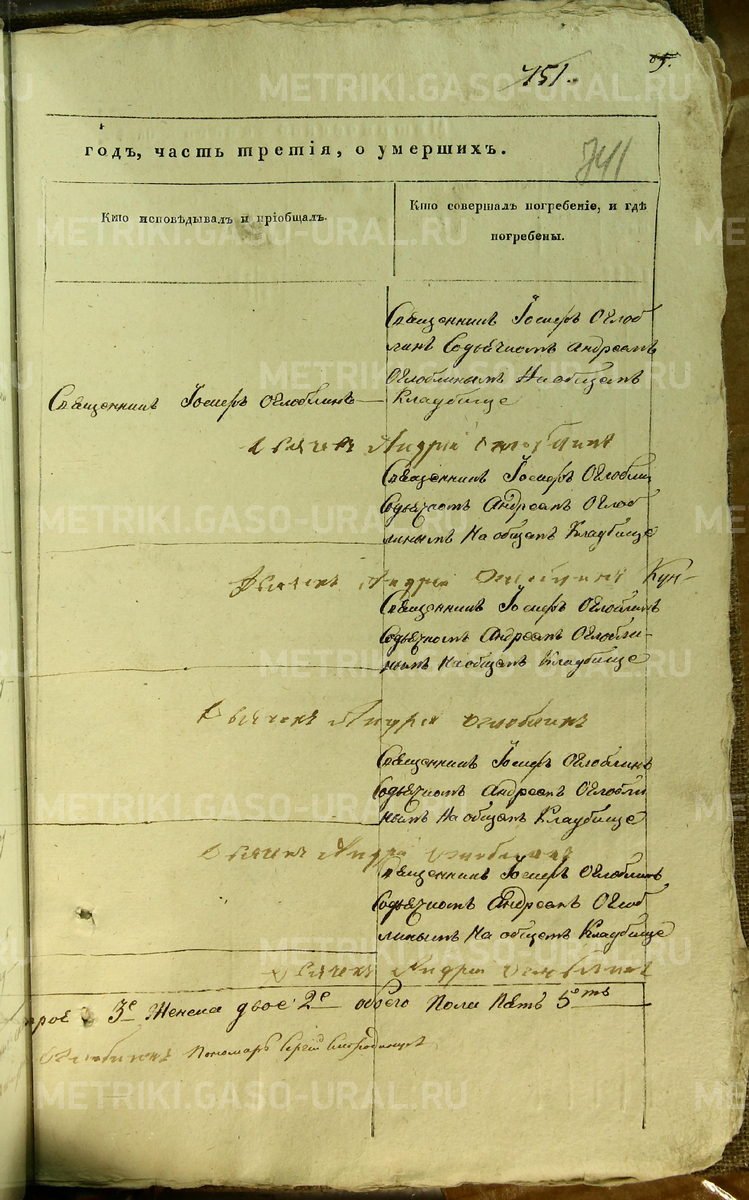 151.
85.
741
годъ, часть третія, о умершихъ.
Кто исповѣдывалъ и пріобщалъ.
Кто совершалъ погребеніе, и гдѣ
погребены.
Священникъ Іосифъ Оглоб
линъ Содьячкомъ Андреемъ
Оглоблинымъ На общемъ
Кладбище
Священникъ Іосифъ Оглоблинъ
Дьячекъ Андрей Оглоблинъ
Священникъ Іосифъ Оглоблин
Содьячкомъ Андреемъ Оглоб
линымъ На общемъ Кладбище
Дьячекъ Андрей Оглоблинъ
Священникъ Іосифъ Оглоблинъ
Содьячкомъ Андреемъ Оглобли-
нымъ На общемъ Кладбище
Дьячекъ Андрей Оглоблинъ
Священникъ Іосифъ Оглоблинъ
Содьячкомъ Андреемъ Оглобли
нымъ На общемъ Кладбище
Дьячекъ Андрей Оглоблинъ
Священникъ Іосифъ Оглоблинъ
Содьячкомъ Андреемъ Оглоб
линымъ На общемъ Кладбище
Дьячекъ Андрей Оглоблинъ
трое 3е Женска двое 2е обоего Пола Пять 5ть
Оглоблинъ Пономарь Сергій
METRIKI.GASO-URAL.RU